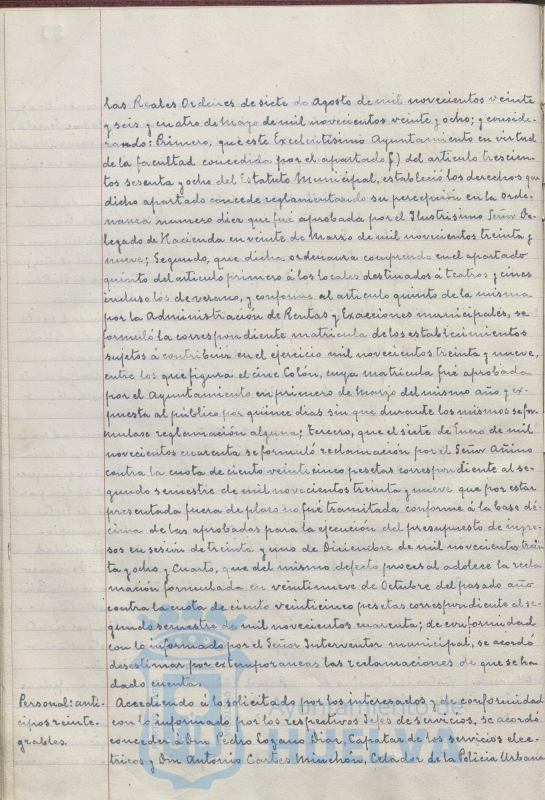 las Reales Ordenes de siete de Agosto de mil novecientos veinte
y seis y cuatro de Mayo de mil novecientos veinte y ocho; y conside-
rando: Primero, que este Excelentísimo Ayuntamiento en virtud
de la facultad concedida por el apartado f) del artículo trescien-
tos sesenta y ocho del Estatuto Municipal, estableció los derechos que
dicho apartado concede reglamentando su percepción en la Orde-
nanza numero diez que fué aprobada por el Ilustrisimo Señor De-
legado de Hacienda en veinte de Marzo de mil novecientos treinta y
nueve; Segundo, que dicha ordenanza comprende en el apartado
quinto del articulo primero á los locales destinados á teatros y cines
incluso los de verano, y conforme al artículo quinto de la misma
por la Administración de Rentas y Exacciones municipales, se
formuló la correspondiente matricula de los establecimientos
sujetos á contribuir en el ejercicio mil novecientos treinta y nueve,
entre los que figura el cine Colón, cuya matricula fué aprobada
por el Ayuntamiento en primero de Marzo del mismo año y ex-
puesta al público por quince dias sin que durante los mismos se for-
mulase reglamación alguna; tercero, que el siete de Enero de mil
novecientos cuarenta se formuló reclamación por el Señor
contra la cuota de ciento veinticinco pesetas correspondiente al se-
gundo semestre de mil novecientos treinta y nueve que por estar
presentada fuera de plazo no fué tramitada conforme á la base dé-
cima de las aprobadas para la ejecución del presupuesto de ingre-
sos en sesión de treinta y uno de Diciembre de mil novecientos trein
ta y ocho y Cuarto, que del mismo defecto procesal adolece la recla
mación formulada en veintinueve de Octubre del pasado año
contra la cuota de ciento veinticinco pesetas correspondiente al se-
gundo semestre de mil novecientos cuarenta; de conformidad
con lo informado por el Señor Interventor municipal, se acordó
desestimar por extemporaneas las reclamaciones de que se ha
dado cuenta.
Personal: anti-
cipos reinte-
grables.
Accediendo á lo solicitado por los interesados y de conformidad
con lo informado por los respectivos Jefes de servicios, se acordó
conceder á Don Pedro Lozano Diaz, Capataz de los servicios elec-
tricos y Don Antonio Cartes Minchón, Celador de la Policia Urbana
Ayuntamiento de
HUELVA